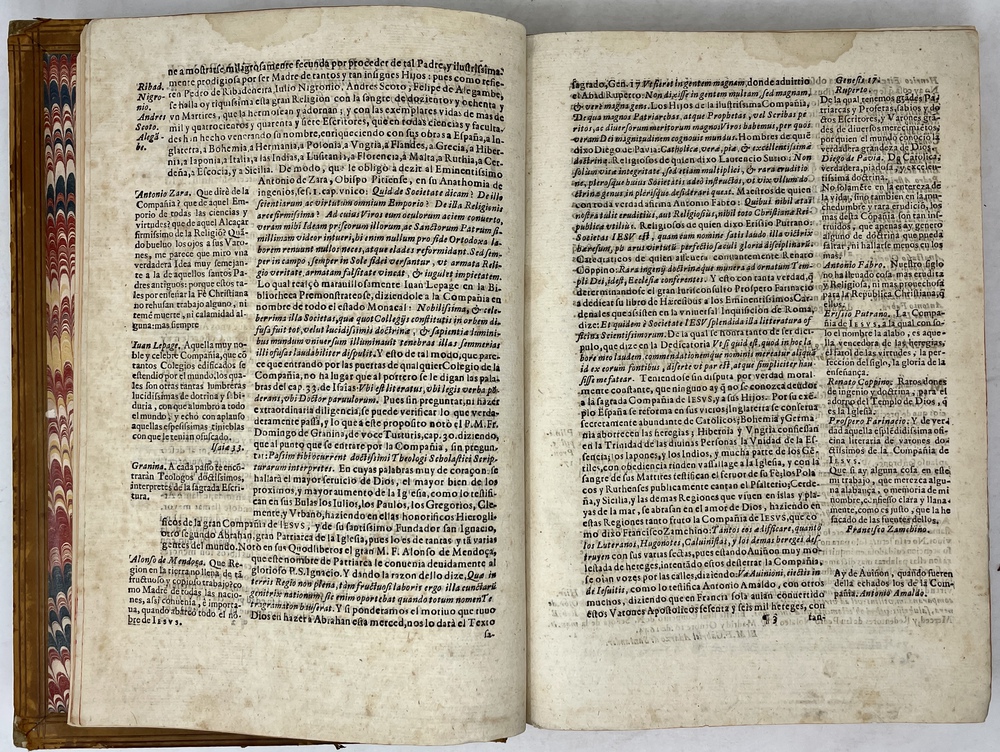 ne a mostrarse milagrosamente fecunda por proceder de tal Padre, y ilustrissima
mente prodigiosa por ser Madre de tantos y tan insignes Hijos: pues como refie-
ren Pedro de Ribadoneira, Iulio Nigronio, Andres Scoto, Felipe de Alegambe,
se halla oy riquissima esta gran Religion con la sangre de dozientos y ochenta y
vn Martires, que la hermosean y adornan; y con las exemplares vidas de mas de
mil y quatrocientos y quarenta y siete Escritores, que en todas ciencias y faculta-
des han hecho venerando su nombre, enriqueciendo con sus obras a España, a In-
glaterra, a Bohemia, a Hermania, a Polonia, a Vngria, a Flandes, a Grecia, a Hiber-
nia, a Iaponia, a Italia, a las Indias, a Lusitania, a Florencia, a Malta, a Ruthia, a Cer-
deña, a Escocia, y a Sicilia. De modo, que le obligò a dezir al Eminentissimo
Antonio de Zara, Obispo Pitiense, en su Anathomia de
ingenios, ses. 1. cap. vnico: Quid de Societate dicam? De illo
scientiarum ac virtutum omnium Emporio? De illa Religionis
arce firmissima? Ad cuius Viros cum oculorum aciem conuerto,
veram mihi Ideam priscorum illorum, ac Sanctorum Patrum si-
millimam videor intueri, hi enim nullum pro fide Ortodoxa la-
borem renuunt nullas neces, atque clades reformidant. Sed sem-
per in campo, semper in Sole fidei versantur, vt armata Reli-
gio veritate, armatam falsitate vincat, & iugulet impietatem.
Lo qual realçò marauillosamente Iuan Lepage en la Bi-
bliotheca Premonstratense, diziendole a la Compañia en
nombre de todo el estado Monacal: Nobilissima, & cele-
berrima illa Societas, qua quot Collegijs constitutis in orbem di-
fusa fuit tot, velut lucidissimis doctrinæ, & sapientia luminibus
mundum vniuersum illuminauit tenebras illas
illi ofusas laudabiliter dispulit. Y esto de tal modo, que pare-
ce que entrando por las puertas de qualquier Colegio de la
Compañia, no ha lugar que al portero se le digan las pala-
bras del cap. 33. de Isaias: Vbi est literatus, vbi legis verba pō-
derans, vbi Doctor paruulorum. Pues sin preguntar, ni hazer
extraordinaria diligencia, se puede verificar lo que verda-
deramente passa, y lo que a este proposito notò el P. M. Fr.
Domingo de Granina, de voce Turturis, cap. 30. diziendo,
que al punto que se entrare por la Compañia, sin pregun-
tar: Passim tibi occurrent doctissimi Theologi Scholastici Scrip-
turarum interpretes. En cuyas palabras muy de coraçon se
hallarà el mayor seruicio de Dios, el mayor bien de los
proximos, y mayor aumento de la Iglesia, como lo testifi-
can en sus Bulas los Iulios, los Paulos, los Gregorios, Cle-
mente, y Vrbano, haziendo en ellas honorificos Hierogli-
ficos de la gran Compañia de IESVS, y de su santissimo Fundador san Ignacio,
otro segundo Abrahan, gran Patriarca de la Iglesia, pues lo es de tantas y tā varias
gentes del mundo. Noto en sus Quodliberos el gran M. F. Alonso de Mendoça,
que este nombre de Patriarca le conuenia deuidamente al
glorioso P. S. Ignacio. Y dando la razon dello dize, Qua in
terris Regio non plena, tàm fructuosi laboris ergo illa cunctarū
genitrix nationum sic enim oportebas quando totum nomen
haurserat. Y si ponderamos el motiuo que tuuo
Dios en hazer a Abrahan esta merced, nos lo darà el Texto
sa-
Ribad.
Nigro-
nio.
Andres
Scoto.
Alegā-
be.
Antonio Zara. Que dirè de la
Compañia? que de aquel Em-
porio de todas las ciencias y
virtudes? que de aquel Alcaçar
firmissimo de la Religiō? Quā-
do bueluo los ojos a sus Varo-
nes, me parece que miro vna
verdadera Idea muy semejan-
te a la de aquellos santos Pa-
dres antiguos: porque estos ta-
les por enseñar la Fè Christiana
no rehusan trabajo alguno, ni
temē muerte, ni calamidad al-
guna: mas siempre
Iuan Lepage. Aquella muy no-
ble y celebre Compañia, que cō
tantos Colegios edificados se
estendiò por el mundo, los qua-
les son otras tantas lumbreras
lucidissimas de dotrina y sabi-
duria, con que alumbrò a todo
el mundo, y echò con aplauso
aquellas espessissimas tinieblas
con que le tenian ofuscado.
Isaiæ 33.
Granina. A cada passo te encō-
traràn Teologos doctissimos,
interpretes de la sagrada Escri-
tura.
Alonso de Mendoça. Que Re-
gion en la tierra no llena de tā
fructuoso y copioso trabajo? co-
mo Madre de todas las nacio-
nes, assi conuenia, è importa-
ua, quando abarcò todo el nō-
bre de IESVS.
sagrado, Gen. 17. Vt fieret in gentem magnam, donde aduirtio
el Abad Ruperto: Non dixisse in gentem multam, sed magnam,
& verè magna gens. Los Hijos de la ilustrissima Compañia,
De qua magnos Patriarchas, atque Prophetas, vel Scribas pe-
ritos, ac diuersorum meritorum magnos Viros habemus, per quos
veram Dei magnitudinem cognouit mundus. Hombres de quiē
dixo Diego de Pauia: Catholica, vera, pia, & excellentissima
doctrina. Religiosos de quien dixo Laurencio Surio: Non
solùm vitæ integritate, sed etiam multiplici, & rara eruditio-
ne, plerosque huius Societatis adeò instructos, vt vix vllum do-
ctrina genus in plerisque desiderari queat. Maestros de quien
con toda verdad afirma Antonio Fabro: Quibus nihil ætas
nostra tulit eruditius, aut Religiosius, nihil toto Christianæ Rei-
publicæ vtilius. Religiosos de quien dixo Erisio Putrano:
Societas IESV est, quam cum nomine satis laudo illa victrix
hæresum, pò aruz virtutis perfectio sæculi gloria disciplinarū.
Catedraticos de quien asseuerò constantemente Renato
Coppino: Rara ingenij doctrinæque munera ad ornatum Tem-
pli Dei, idest, Ecclesiæ conferentes. Y esto con tanta verdad, q̄
determinandose el gran Iurisconsulto Prospero Farinacio
a dedicar su libro de Hæresibus a los Eminentissimos Car-
denales que assisten en la vniuersal Inquisicion de Roma,
dize: Et quidem è Societate IESV splendida illa literatura of-
ficina Scientissimorum: De la qual se honra tanto de ser dici-
pulo, que dize en la Dedicatoria: Vt si quid est, quod in hoc la-
bore meo laudem, commendationemque nominis mereatur aliquā
id ex eorum fontibus, disertè vt par est, atque simpliciter hau-
sisse me fatear. Teniendose sin disputa por verdad moral-
mente constante, que ninguno ay q̄ no se conozca deudor
a la sagrada Compañia de IESVS, y a sus Hijos. Por su exē-
plo España se reforma en sus vicios; Inglaterra se conserua
secretamente abundante de Catolicos; Bohemia y Germa
nia aborrecen las heregias; Hibernia y Vngria confiessan
en la Trinidad de las diuinas Personas la Vnidad de la Es-
sencia; los Iapones, y los Indios, y mucha parte de los Gē-
tiles, con obediencia rinden vassallage a la Iglesia, y con la
sangre de sus Martires testifican el feruor de su Fè; los Pola
cos y Ruthenses publicamente cantan el Psalterio; Cerde-
ña, y Sicilia, y las demas Regiones que viuen en islas y pla-
yas de la mar, se abrasan en el amor de Dios, haziendo en
estas Regiones tanto fruto la Compañia de IESVS, que co-
mo dixo Francisco Zamechino: Tantos eos ædificare, quantò
los Luteranos, Hugonotes, Caluinistas, y los demas hereges des-
truyen con varias sectas, pues estando Auiñon muy mo-
lestada de hereges, intentado estos desterrar la Compañia,
se oian vozes por las calles, diziendo: Væ Auinioni, eiectis in
de Iesuitis, como lo testifica Antonio Arnaldo, con otros
muchos, diziendo que en Francia sola auian conuertido
estos Varones Apostolicos sesenta y seis mil hereges, con
¶ 3 tan-
Genesis 17.
Ruperto.
De la qual tenemos grādes Pa-
triarcas y Profetas, sabios y do-
ctos Escritores, y Varones grā-
des de diuersos merecimientos;
por quien el mundo conociò la
verdadera grandeza de Dios.
Diego de Pauia. De Catolica,
verdadera, piadosa, y excelen-
tissima dotrina.
No solamēte en la entereza de
la vida, sino tambien en la mu-
chedumbre y rara erudicion, los
mas desta Cōpañia son tan ins-
truidos, que apenas ay genero
alguno de doctrina que pueda
faltar, ni hallarse menos en los
mas.
Antonio Fabro. Nuestro siglo
no ha lleuado cosa mas erudita
y Religiosa, ni mas prouechosa
para la Republica Christiana, q̄
ellos.
Erisio Putrano. La Compa-
ñia de IESVS, a la qual con so-
lo el nombre la alabo, es aque-
lla vencedora de las heregias,
el farol de las virtudes, la per-
feccion del siglo, la gloria de la
enseñança.
Renato Coppino. Raros dones
de ingenio y doctrina, para el
adorno del Templo de Dios, q̄
es la Iglesia.
Prospero Farinacio: Y de ver-
dad aquella esplēdidissima ofi-
cina literaria de varones do-
ctissimos de la Compañia de
IESVS.
Que si ay alguna cosa en este
mi trabajo, que merezca algu-
na alabança, o memoria de mi
nombre, cōfiesso clara y llana-
mente, como es justo, que la he
sacado de las fuentes dellos.
Francisco Zamechino.
Ay de Auiñon, quando fueren
della echados los de la Com-
pañia. Antonio Arnaldo.